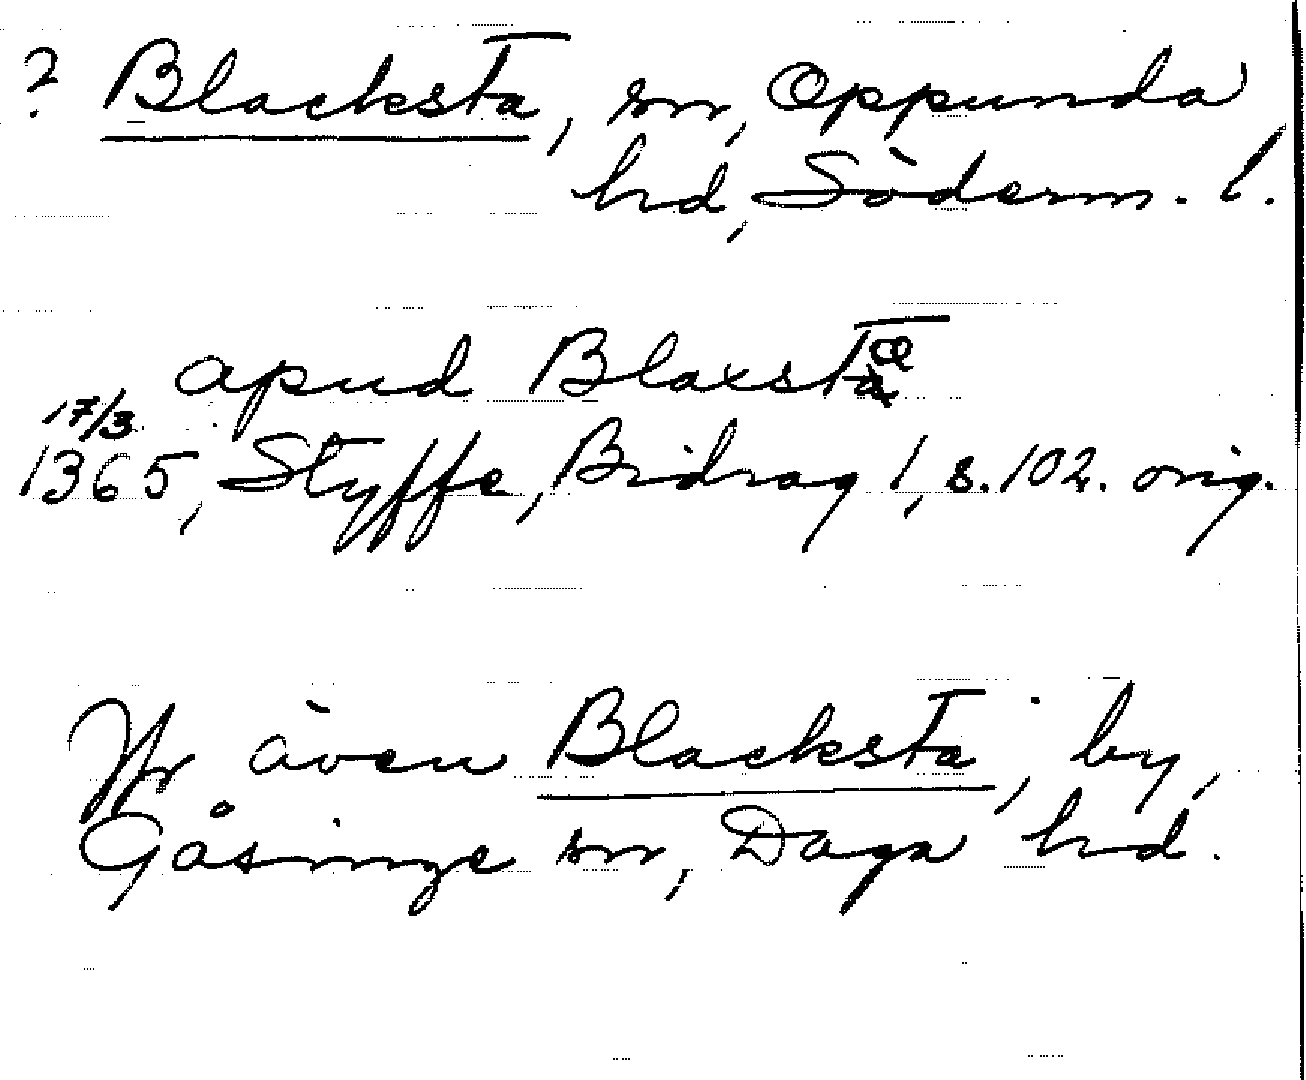 ? Blacksta, sn, Oppunda
hd, Söderm. l.
apud Blaxsta
17/3
1365, Styffe, Bidrag 1, s. 102. orig.
Jfr även Blacksta, by,
Gåsinge sn, Daga hd.